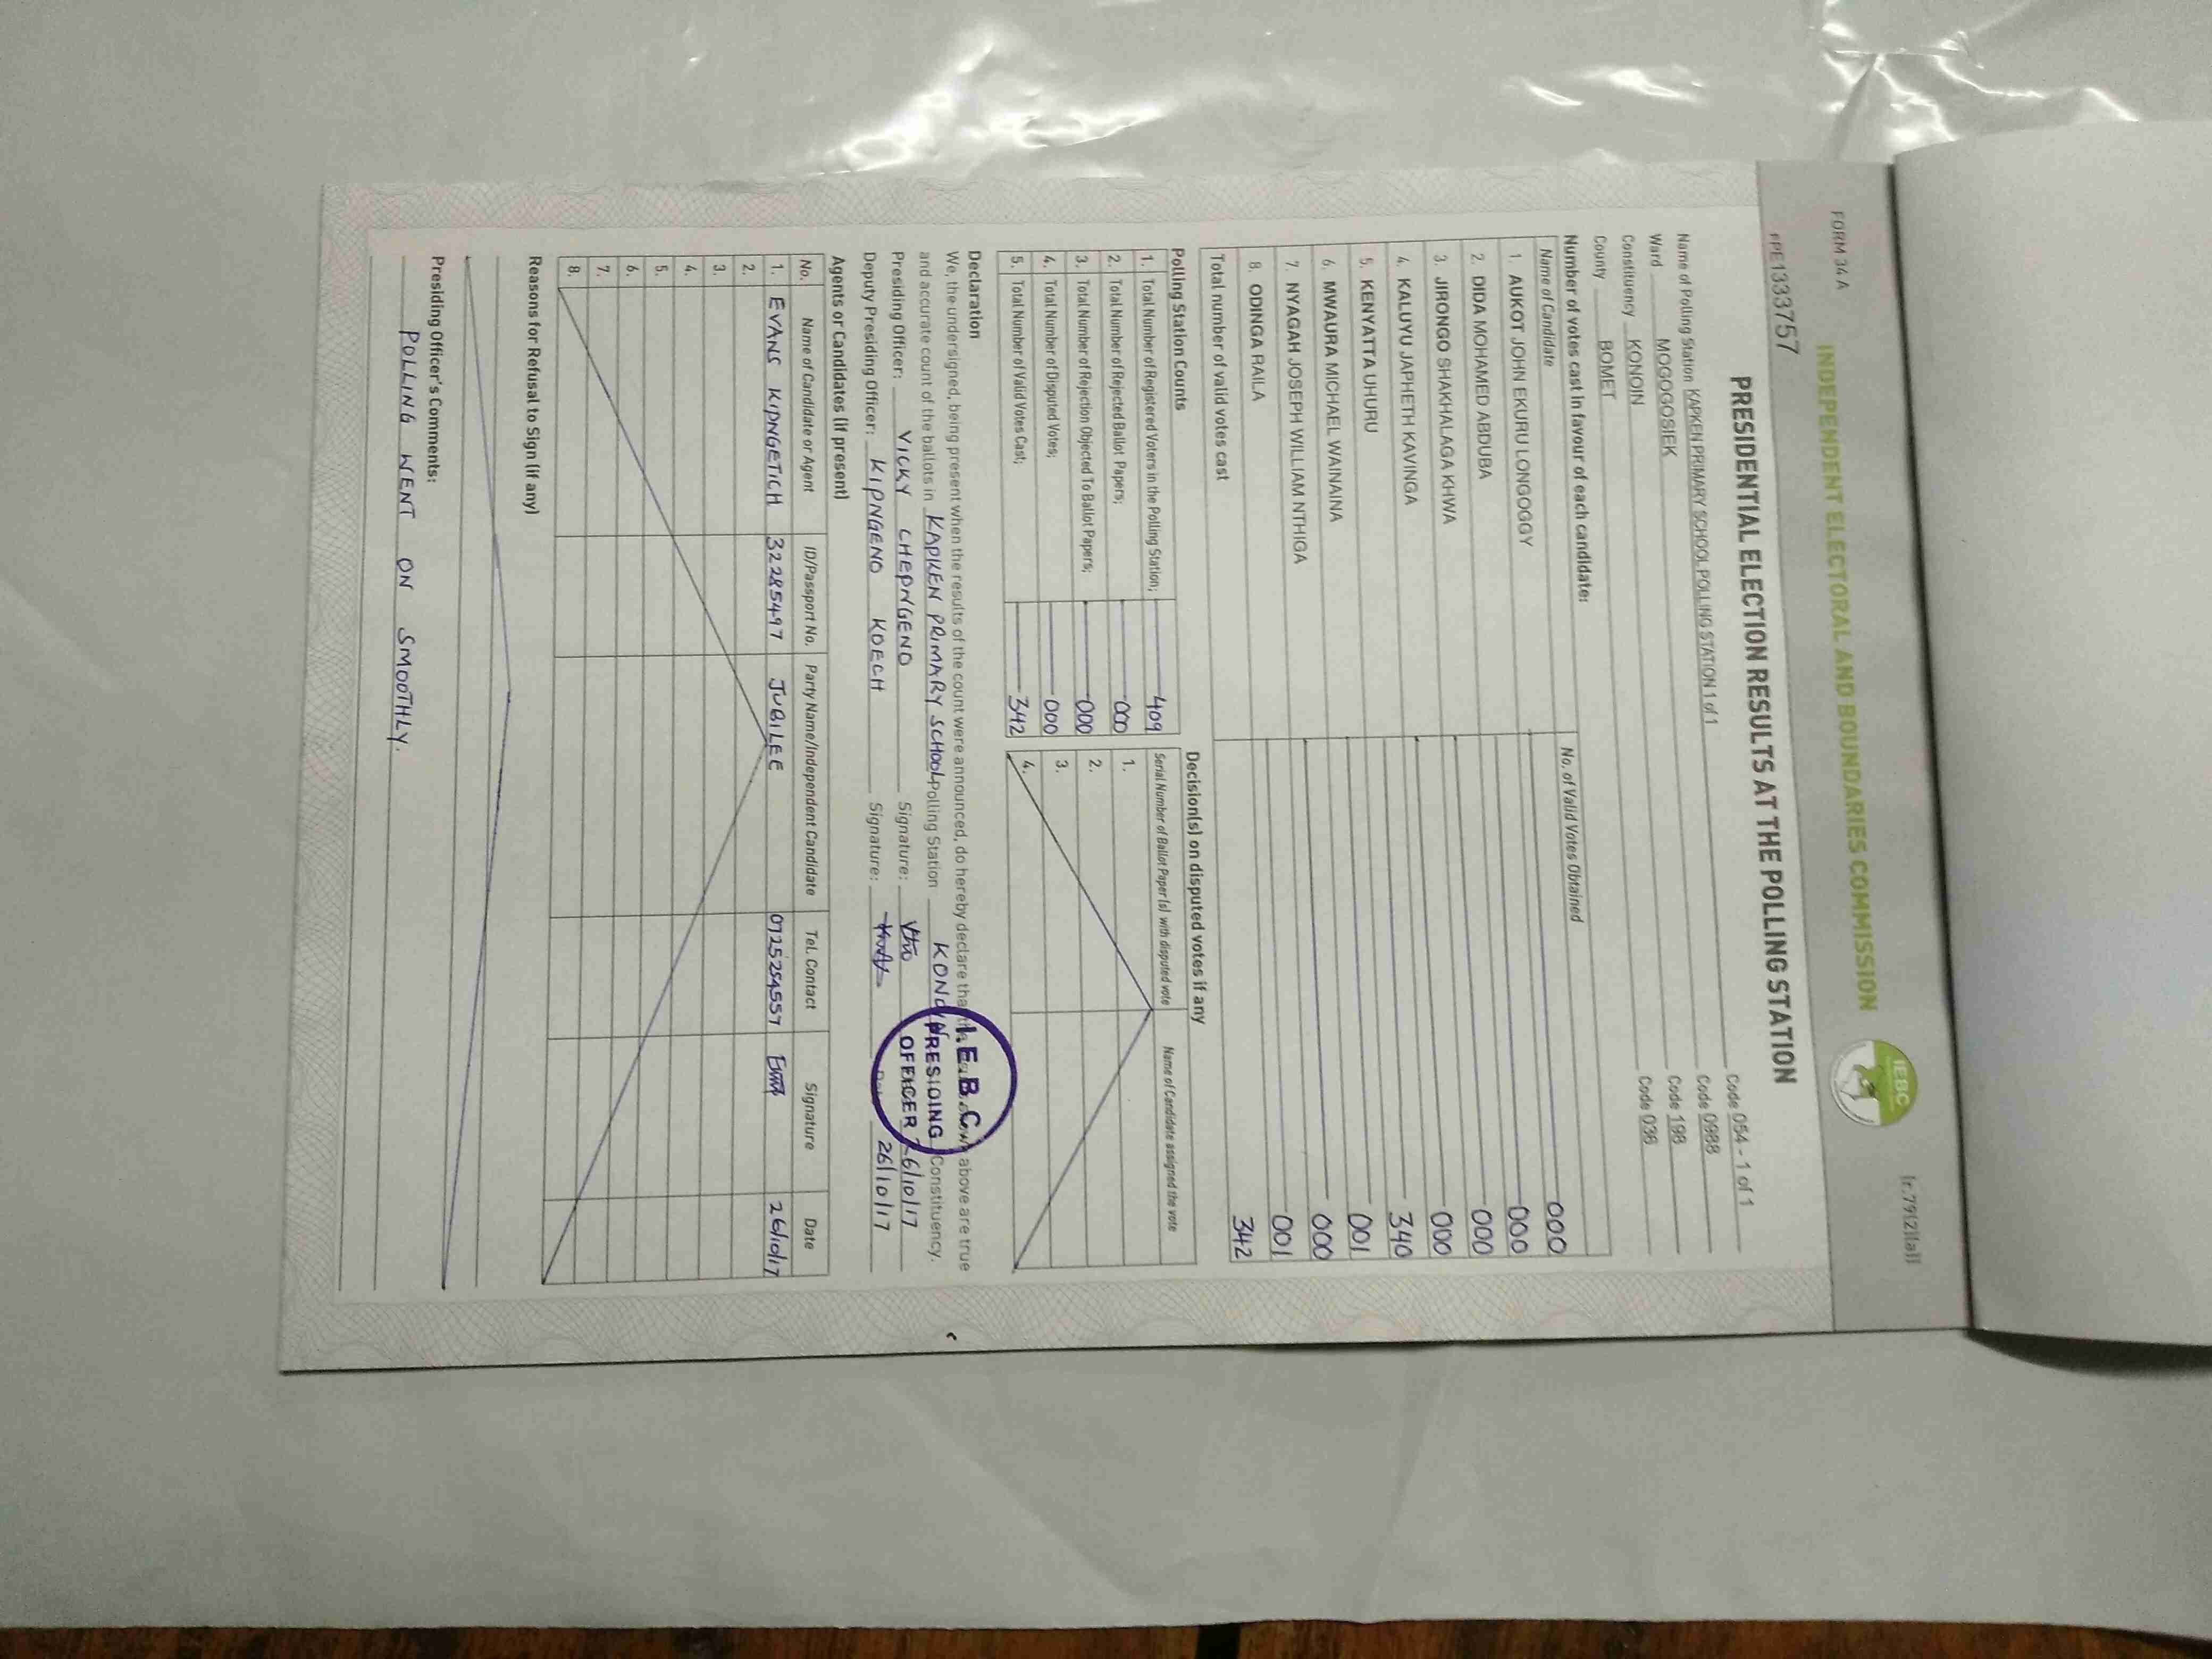 FORM 34 A
INDEPENDENT ELECTORAL AND BOUNDARIES COMMISSION
IEBC
(r.79(2)(a))
PPE1333757
PRESIDENTIAL ELECTION RESULTS AT THE POLLING STATION
Name of Polling Station KAPKEN PRIMARY SCHOOL POLLING STATION 1 of 1 Code 054 - 1 of 1
Ward MOGOGOSIEK Code 0988
Constituency KONOIN Code 198
County BOMET Code 036
Number of votes cast in favour of each candidate:
Name of Candidate No. of Valid Votes Obtained
1. AUKOT JOHN EKURU LONGOGGY 000
2. DIDA MOHAMED ABDUBA 000
3. JIRONGO SHAKHALAGA KHWA 000
4. KALUYU JAPHETH KAVINGA 000
5. KENYATTA UHURU 340
6. MWAURA MICHAEL WAINAINA 001
7. NYAGAH JOSEPH WILLIAM NTHIGA 000
8. ODINGA RAILA 001
Total number of valid votes cast 342
Polling Station Counts
1. Total Number of Registered Voters in the Polling Station; 409
2. Total Number of Rejected Ballot Papers; 000
3. Total Number of Rejection Objected To Ballot Papers; 000
4. Total Number of Disputed Votes; 000
5. Total Number of Valid Votes Cast; 342
Decision(s) on disputed votes if any
Serial Number of Ballot Paper(s) with disputed vote Name of Candidate assigned the vote
1.
2.
3.
4.
Declaration
We, the undersigned, being present when the results of the count were announced, do hereby declare that above are true
and accurate count of the ballots in KAPKEN PRIMARY SCHOOL Polling Station KONOIN Constituency.
Presiding Officer: VICKY CHEPNGENO Signature: 26/10/17
Deputy Presiding Officer: KIPNGENO KOECH Signature: 26/10/17
I.E.B.C
PRESIDING
OFFICER
Agents or Candidates (if present)
No. Name of Candidate or Agent ID/Passport No. Party Name/Independent Candidate Tel. Contact Signature Date
1. EVANS KIPNGETICH 32285497 JUBILEE 0725254557 26/10/17
2.
3.
4.
5.
6.
7.
8.
Reasons for Refusal to Sign (if any)
Presiding Officer's Comments:
POLLING WENT ON SMOOTHLY.